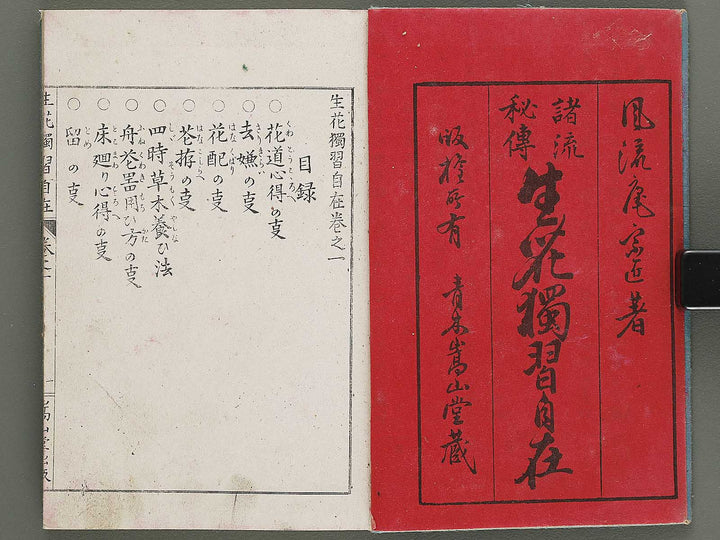 風流庵宗匠著
諸流
秘傳
生花獨習自在
版権所有 青木嵩山堂蔵
生花獨習自在巻之一
目録
○花道心得の叓
○去嫌の叓
○花配の叓
○花拵の叓
○四時草木養ひ法
○舟花器用ひ方の叓
○床廻り心得の叓
○留の叓
生花獨習自在 巻之一
嵩山堂出版